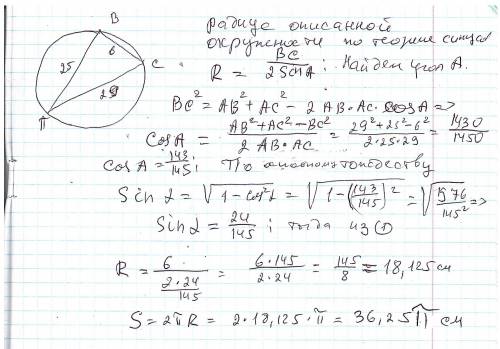 B
6
25
C
29
A
Радиус описанной
окружности по теореме синусов
R = BC / 2SinA ; Найдем угол A.
BC² = AB² + AC² - 2 AB·AC. cosA =>
cosA = AB² + AC² - BC² / 2 AB·AC = 29² + 25² - 6² / 2·25·29 = 1430 / 1450
cosA = 143 / 145; По основному тождеству
Sin α = √1 - cos²α = √1 - (143/145)² = √576 / 145² =>
Sin α = 24 / 145 ; тогда из ①
R = 6 / 2·24/145 = 6·145 / 2·24 = 145 / 8 = 18,125 см
S = 2πR = 2·18,125·π = 36,25π см